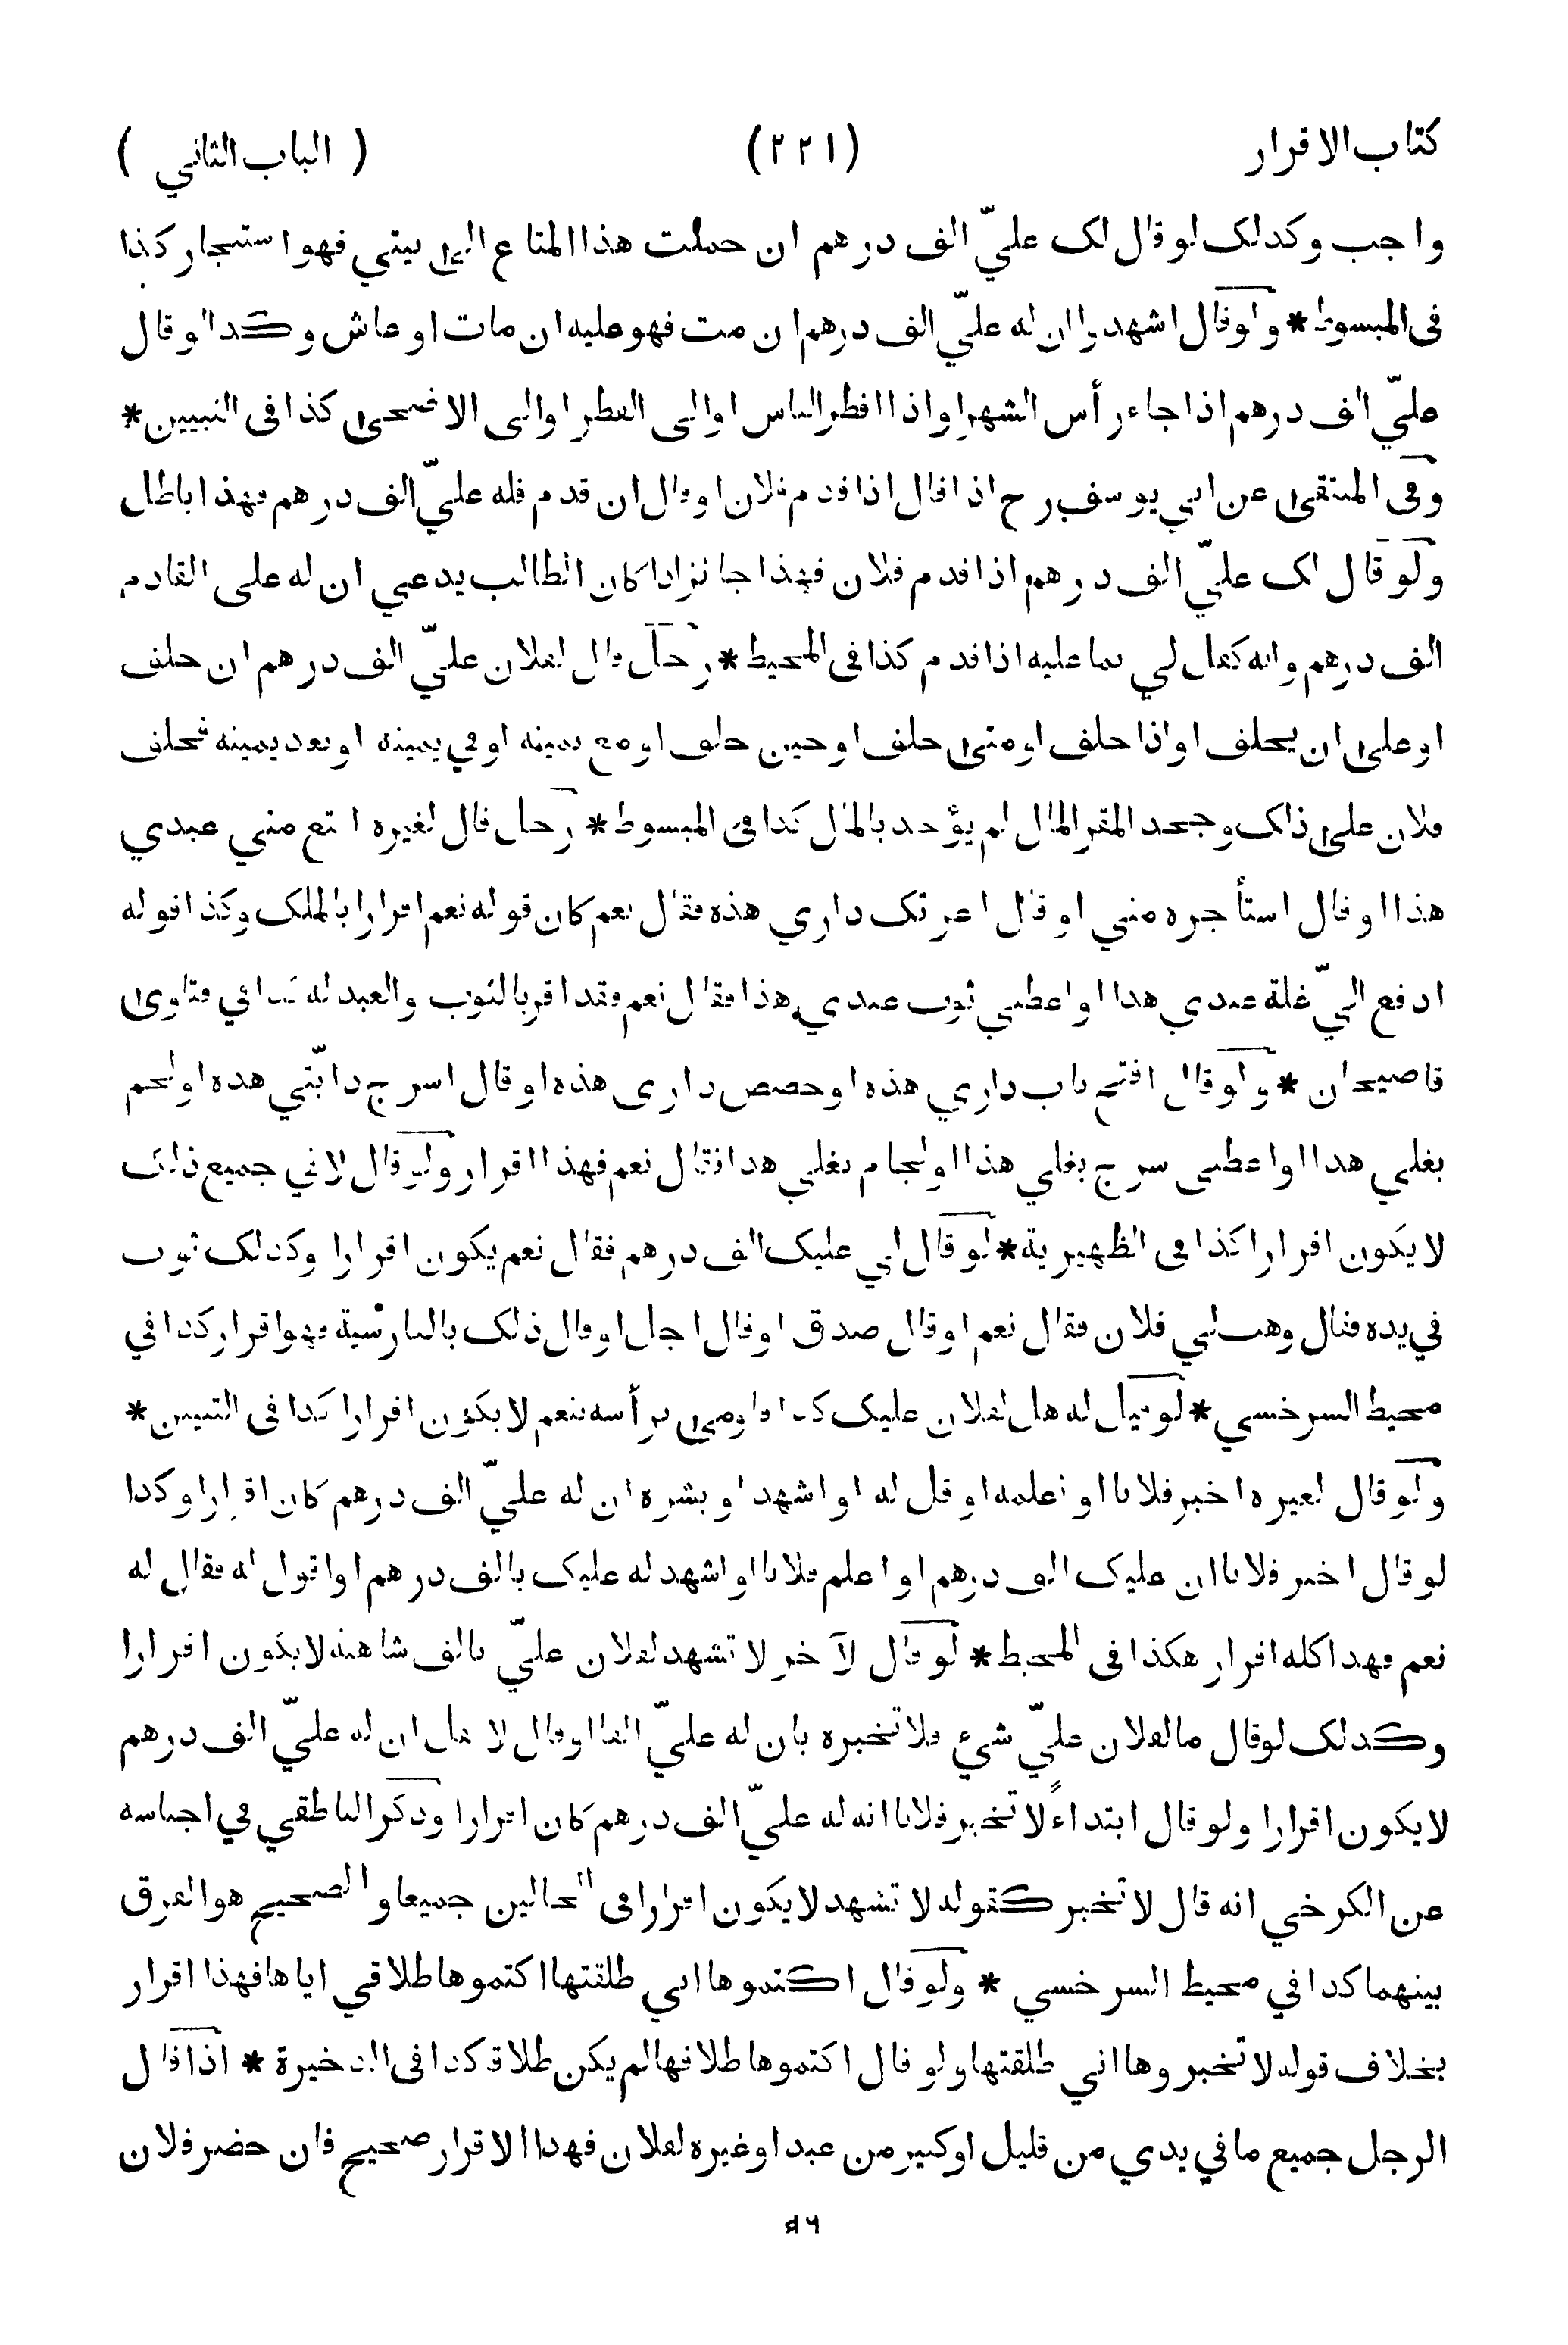 كتاب الاقرار (٢٢١) ( الباب الثاني )
واجب وكذلك لو قال لك عليّ الف درهم ان حملت هذا المتاع الى بيتي فهو استيجار كذا
فى المبسوط * ولو قال اشهدوا ان له عليّ الف درهم ان مت فهو عليه ان مات او عاش وكذا لو قال
عليّ الف درهم اذا جاء رأس الشهر او اذا افطر الناس او الى الفطر او الى الاضحى كذا فى التبيين *
وفى المنتقى عن ابي يوسف رح اذا قال اذا قدم فلان او قال ان قدم فله عليّ الف درهم فهذا باطل
ولو قال لك عليّ الف درهم اذا قدم فلان فهذا جائز اذا كان الطالب يدعي ان له على القادم
الف درهم وانه كفل لي بما عليه اذا قدم كذا فى المحيط * رجل قال لفلان عليّ الف درهم ان حلف
او على ان يحلف او اذا حلف او متى حلف او حين حلف او مع يمينه او في يمينه او بعد يمينه فحلف
فلان على ذلك وجحد المقر المال لم يؤخذ بالمال كذا فى المبسوط * رجل قال لغيره ابتع مني عبدي
هذا او قال استأجره مني او قال اعرتك داري هذه فقال نعم كان قوله نعم اقرارا بالملك وكذا قوله
ادفع اليّ غلة عبدي هذا او اعطني ثوب عبدي هذا فقال نعم فقد اقر بالثوب والعبد له كذا في فتاوى
قاضيخان * ولو قال افتح باب داري هذه او جصص داري هذه او قال اسرج دابّتي هذه او الجم
بغلي هذا او اعطني سرج بغلي هذا او لجام بغلي هذا فقال نعم فهذا اقرار ولو قال لا في جميع ذلك
لا يكون اقرارا كذا فى الظهيرية * لو قال لي عليك الف درهم فقال نعم يكون اقرارا وكذلك ثوب
في يده فقال وهب لي فلان فقال نعم او قال صدق او قال اجل او قال ذلك بالفارسية فهو اقرار كذا في
محيط السرخسي * لو قيل له هل لفلان عليك كذا فاومى برأسه بنعم لا يكون اقرارا كذا فى التبيين *
ولو قال لغيره اخبر فلانا او اعلمه او قل له او اشهد او بشره ان له عليّ الف درهم كان اقرارا وكذا
لو قال اخبر فلانا ان عليك الف درهم او اعلم فلانا او اشهد له عليك بالف درهم او اقول له فقال له
نعم فهذا كله اقرار هكذا فى المحيط * لو قال لآخر لا تشهد لفلان عليّ بالف شاهنه لا يكون اقرارا
وكذلك لو قال ما لفلان عليّ شيء فلا تخبره بان له عليّ الفا او قال لا تقل ان له عليّ الف درهم
لا يكون اقرارا ولو قال ابتداءً لا تخبر فلانا انه له عليّ الف درهم كان اقرارا وذكر الناطقي في اجناسه
عن الكرخي انه قال لا تخبر كقوله لا تشهد لا يكون اقرارا فى الحالين جميعا والصحيح هو الفرق
بينهما كذا في محيط السرخسي * ولو قال اكتموها اني طلقتها اكتموها طلاقي اياها فهذا اقرار
بخلاف قوله لا تخبروها اني طلقتها ولو قال اكتموها طلاقها لم يكن طلاقا كذا فى الذخيرة * اذا قال
الرجل جميع ما في يدي من قليل او كثير من عبد او غيره لفلان فهذا الاقرار صحيح فان حضر فلان